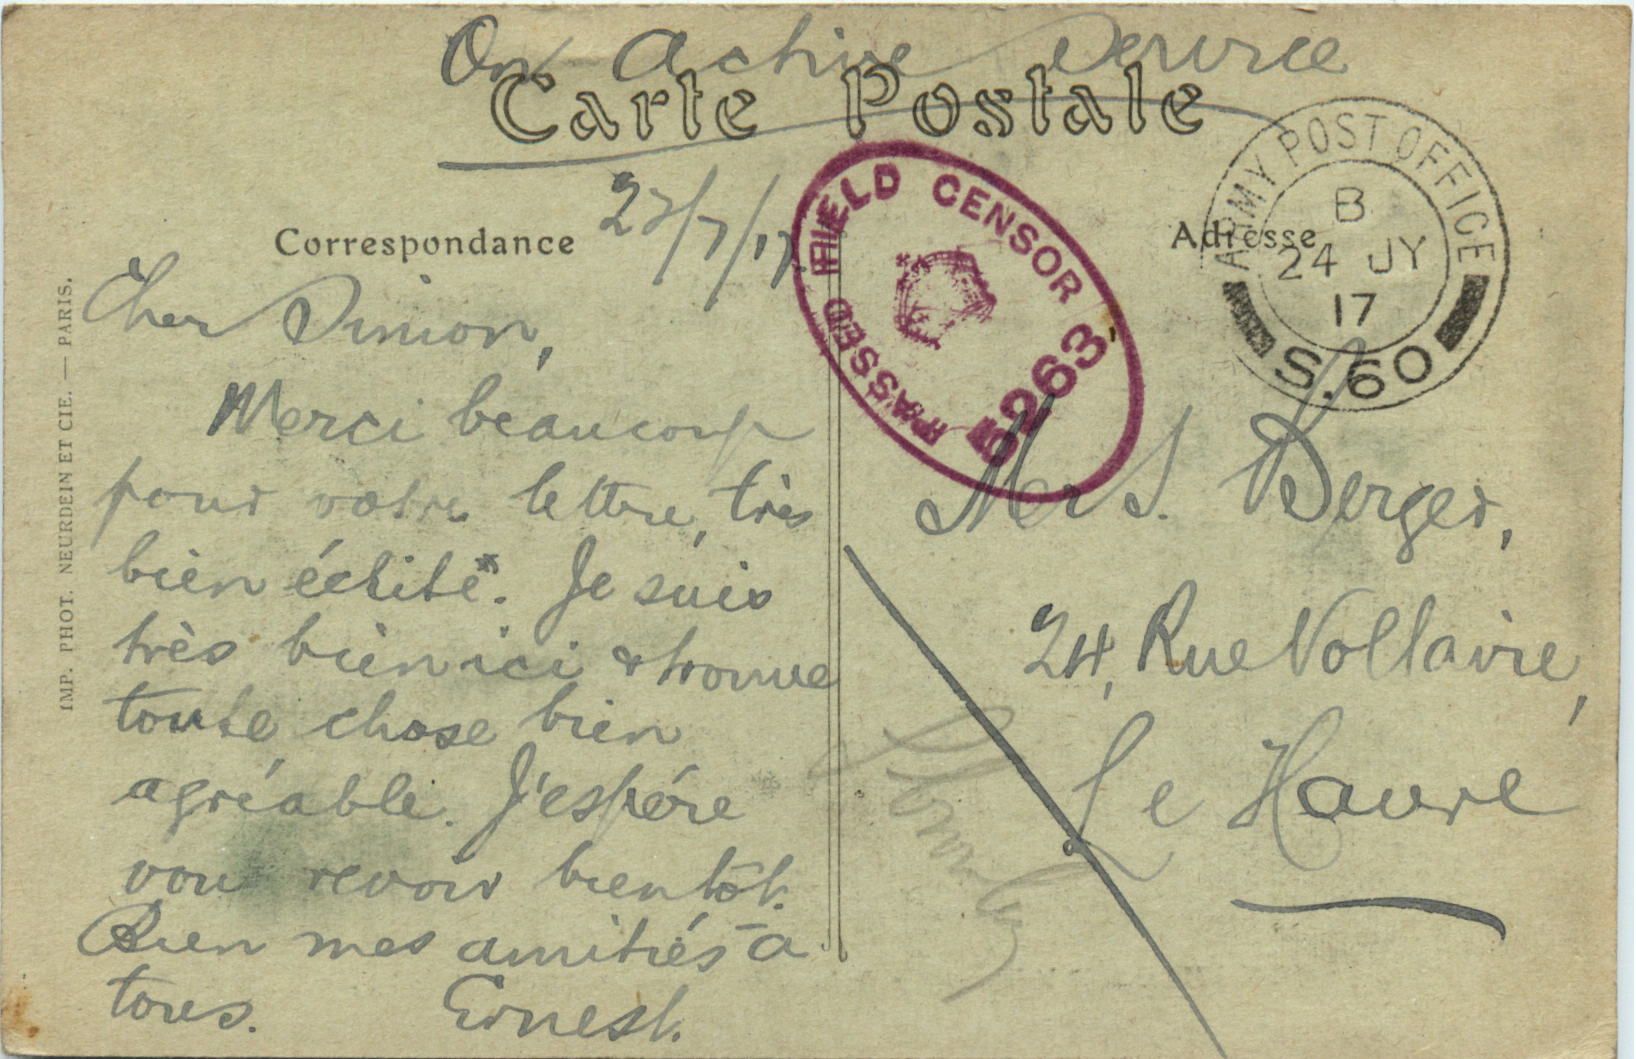 On Active Service
Carte Postale
Correspondance
23/7/17
Adresse
ARMY POST OFFICE
B
24 JY
17
S.60
PASSED FIELD CENSOR
5263
IMP. PHOT. NEURDEIN ET CIE. — PARIS.
Cher Simon,
Merci beaucoup
pour votre lettre, très
bien édité. Je suis
très bien ici & trouve
toute chose bien
agréable. J'espére
vous revoir bientôt.
Bien mes amitiés à
tous. Ernest.
Mr S. Berger,
24, Rue Voltaire,
Le Havre